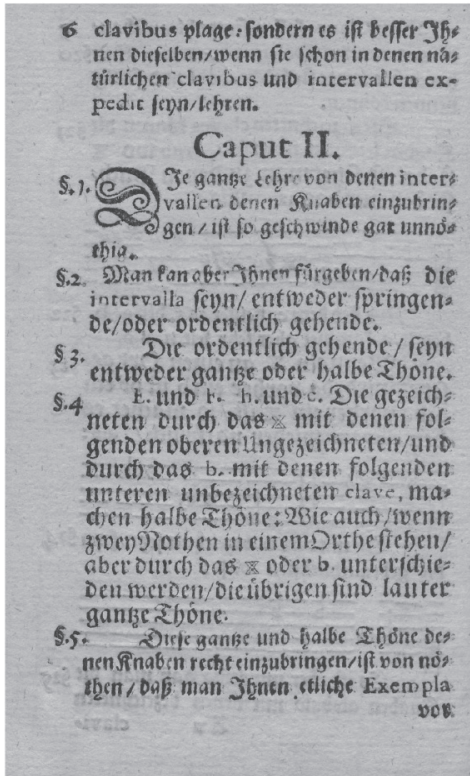 6 clavibus plage: sondern es ist besser Jh⸗
nen dieselben/wenn sie schon in denen na⸗
türlichen clavibus und intervallen ex⸗
pedit seyn/lehren.
Caput II.
§.1. DJe gantze Lehre von denen inter⸗
vallen denen Knaben einzubrin⸗
gen/ist so geschwinde gar unnö⸗
thig.
§.2. Man kan aber Jhnen fürgeben/daß die
intervalla seyn/entweder springen⸗
de/oder ordentlich gehende.
§ 3. Die ordentlich gehende/seyn
entweder gantze oder halbe Thöne.
§.4 E. und F. h. und c. Die gezeich⸗
neten durch das ⨳ mit denen fol⸗
genden oberen Ungezeichneten/und
durch das b. mit denen folgenden
unteren unbezeichneten clave, ma⸗
chen halbe Thöne: Wie auch/wenn
zwey Nothen in einem Orthe stehen/
aber durch das ⨳ oder b. unterschie⸗
den werden/die übrigen sind lauter
gantze Thöne.
§.5. Diese gantze und halbe Thöne de⸗
nen Knaben recht einzubringen/ist von nö⸗
then/daß man Jhnen etliche Exempla
vor